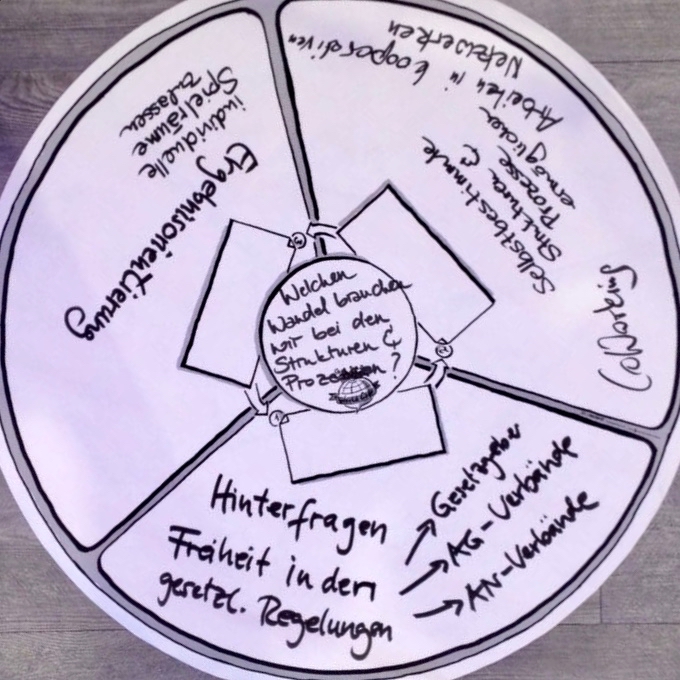 Welchen
Wandel brauchen
wir bei den
Strukturen &
Prozessen?
Hinterfragen
Freiheit in den
gesetzl. Regelungen
→ Gesetzgeber
→ AG-Verbände
→ AN-Verbände
Selbstbestimmte
Strukturen &
Prozesse
ermöglichen
Arbeiten in kooperativen
Netzwerken
CoWorking
Ergebnisorientierung
individuelle
Spielräume
zulassen
1
2
3